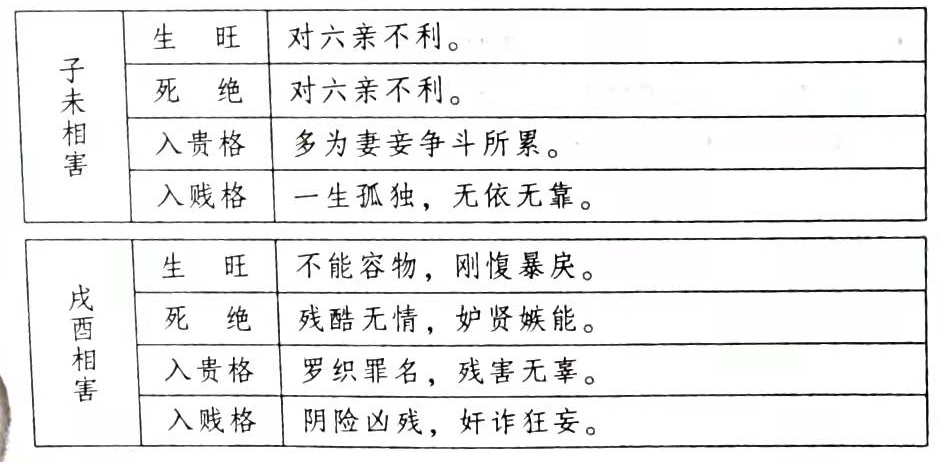 子未相害
生 旺 对六亲不利。
死 绝 对六亲不利。
入贵格 多为妻妾争斗所累。
入贱格 一生孤独，无依无靠。
戌酉相害
生 旺 不能容物，刚愎暴戾。
死 绝 残酷无情，妒贤嫉能。
入贵格 罗织罪名，残害无辜。
入贱格 阴险凶残，奸诈狂妄。